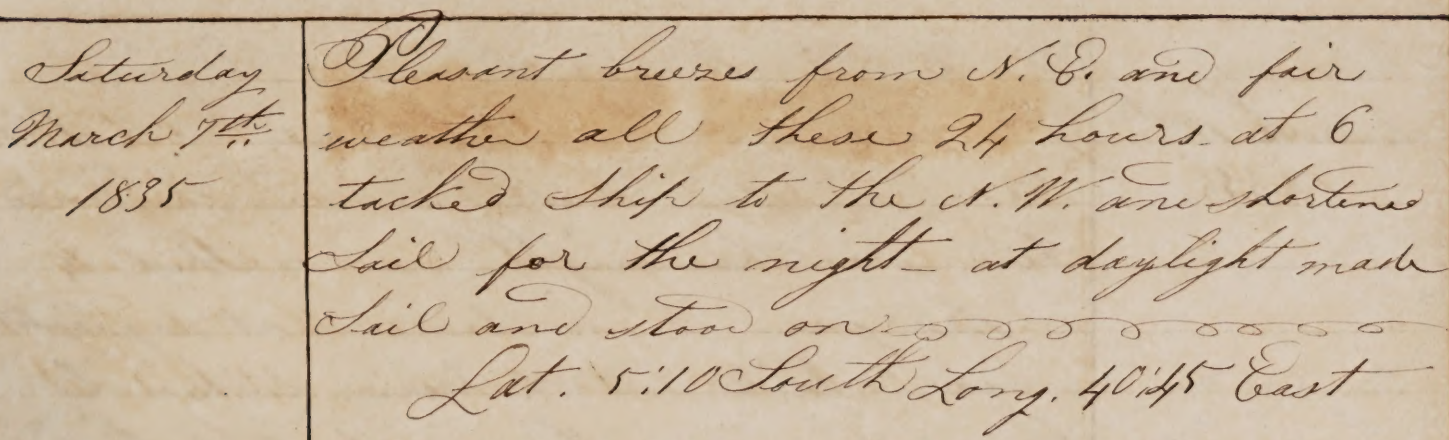 Saturday
March 7th
1835
Pleasant breezes from N. E. and fair
weather all these 24 hours - at 6
tacked Ship to the N. W. and shortened
Sail for the night - at daylight made
Sail and stood on
Lat. 5:10 South Long. 40:45 East